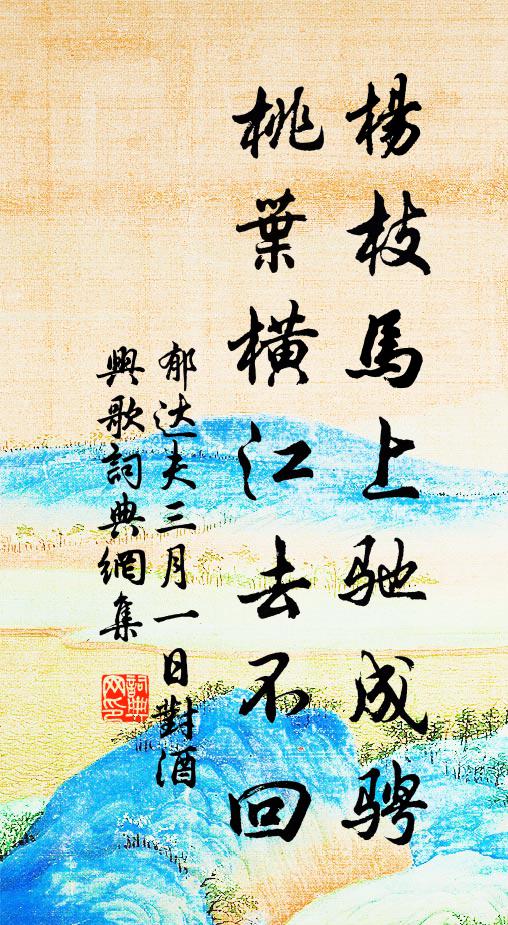 楊枝馬上驰成骋
桃葉橫江去不回
郁达夫三月一日對酒
興歌詞典網集
詞典
网印